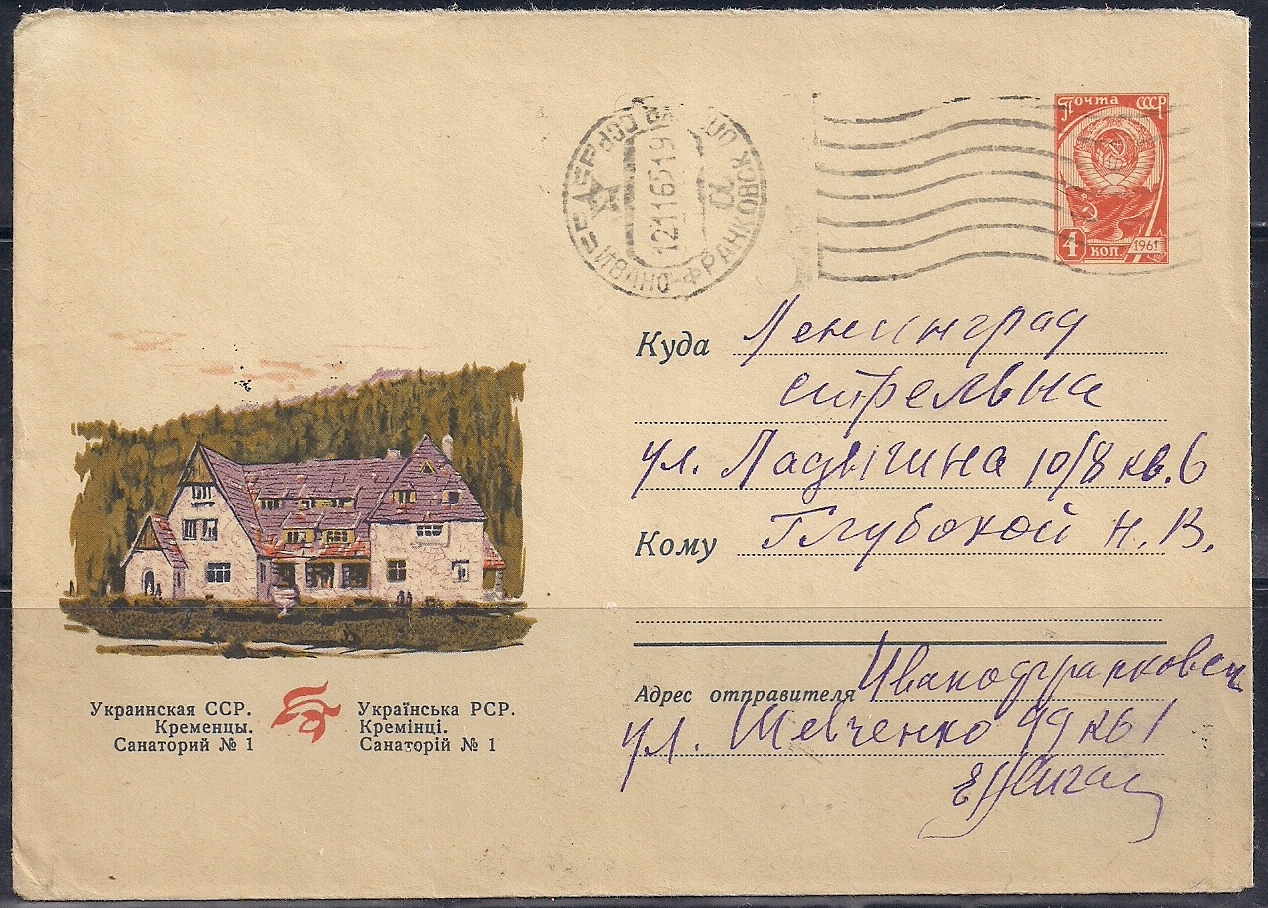 Почта СССР
4 коп 1961
УССР
ИВАНО-ФРАНКОВСК
12116519
Куда Ленинград
стрельна
ул. Ладыгина 10/8 кв. 6
Кому Глубокой Н. В.
Адрес отправителя Иванофранковск
ул. Шевченко 99 кв 1
Украинская ССР.
Кременцы.
Санаторий № 1
Українська РСР.
Кремінці.
Санаторій № 1